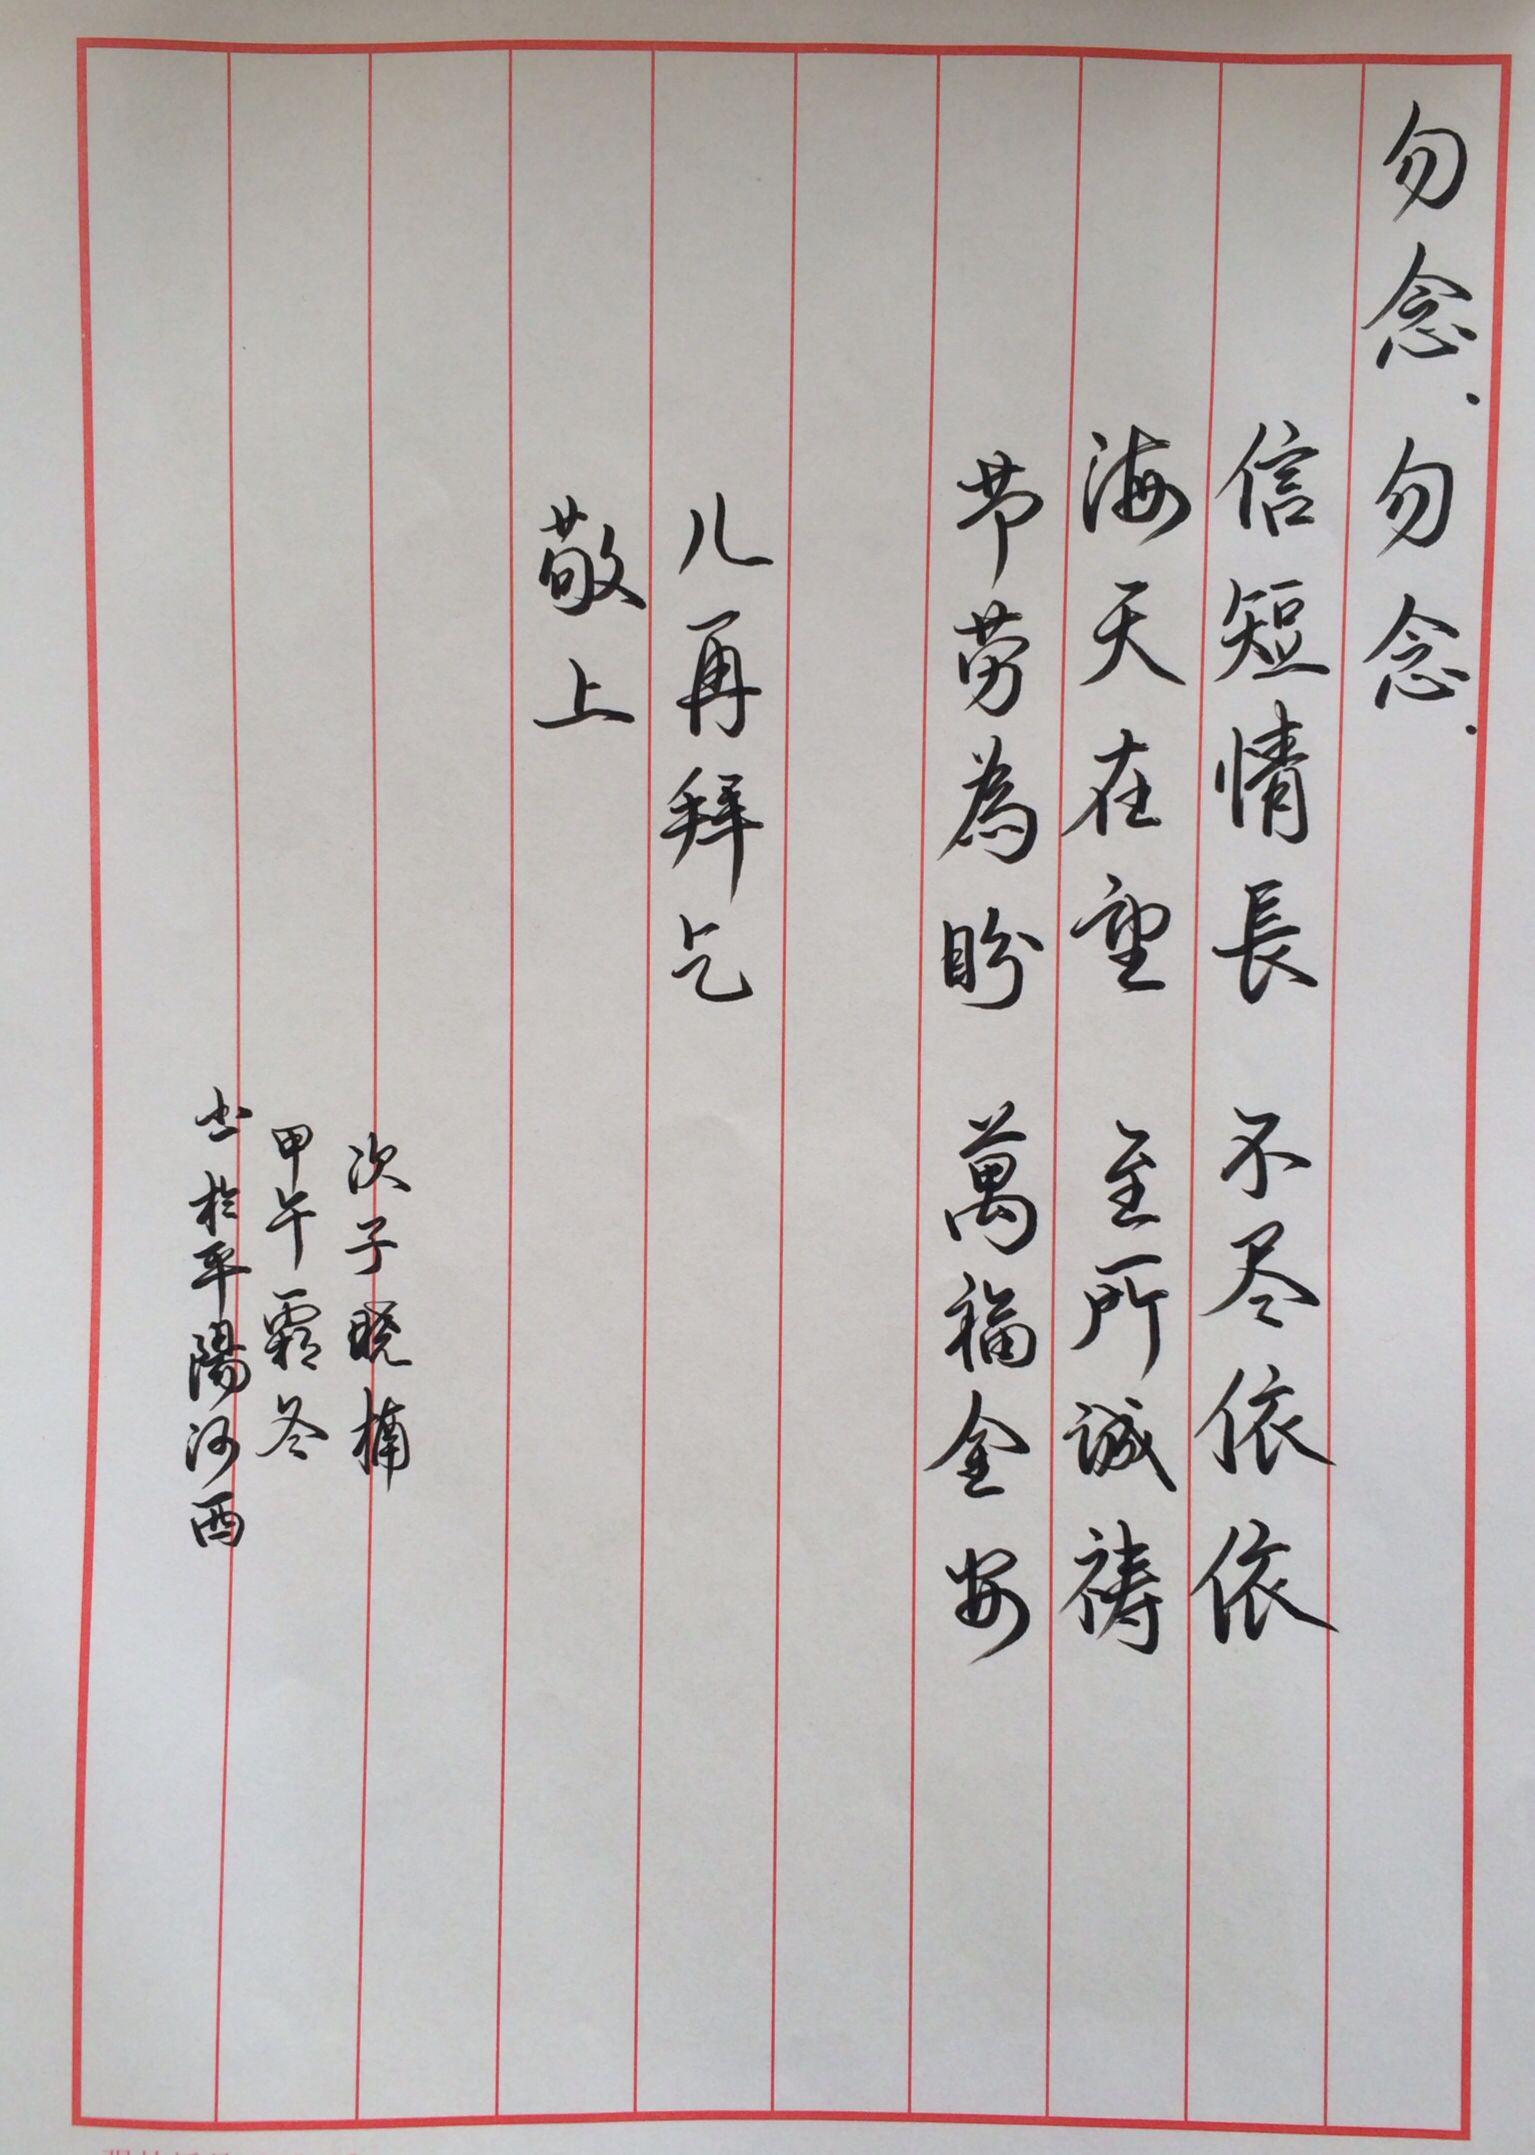 勿念.勿念.
信短情長 不尽依依
海天在望 至所诚祷
节劳為盼 萬福金安
儿再拜乞
敬上
次子晓楠
甲午霜冬
书於平陽河西